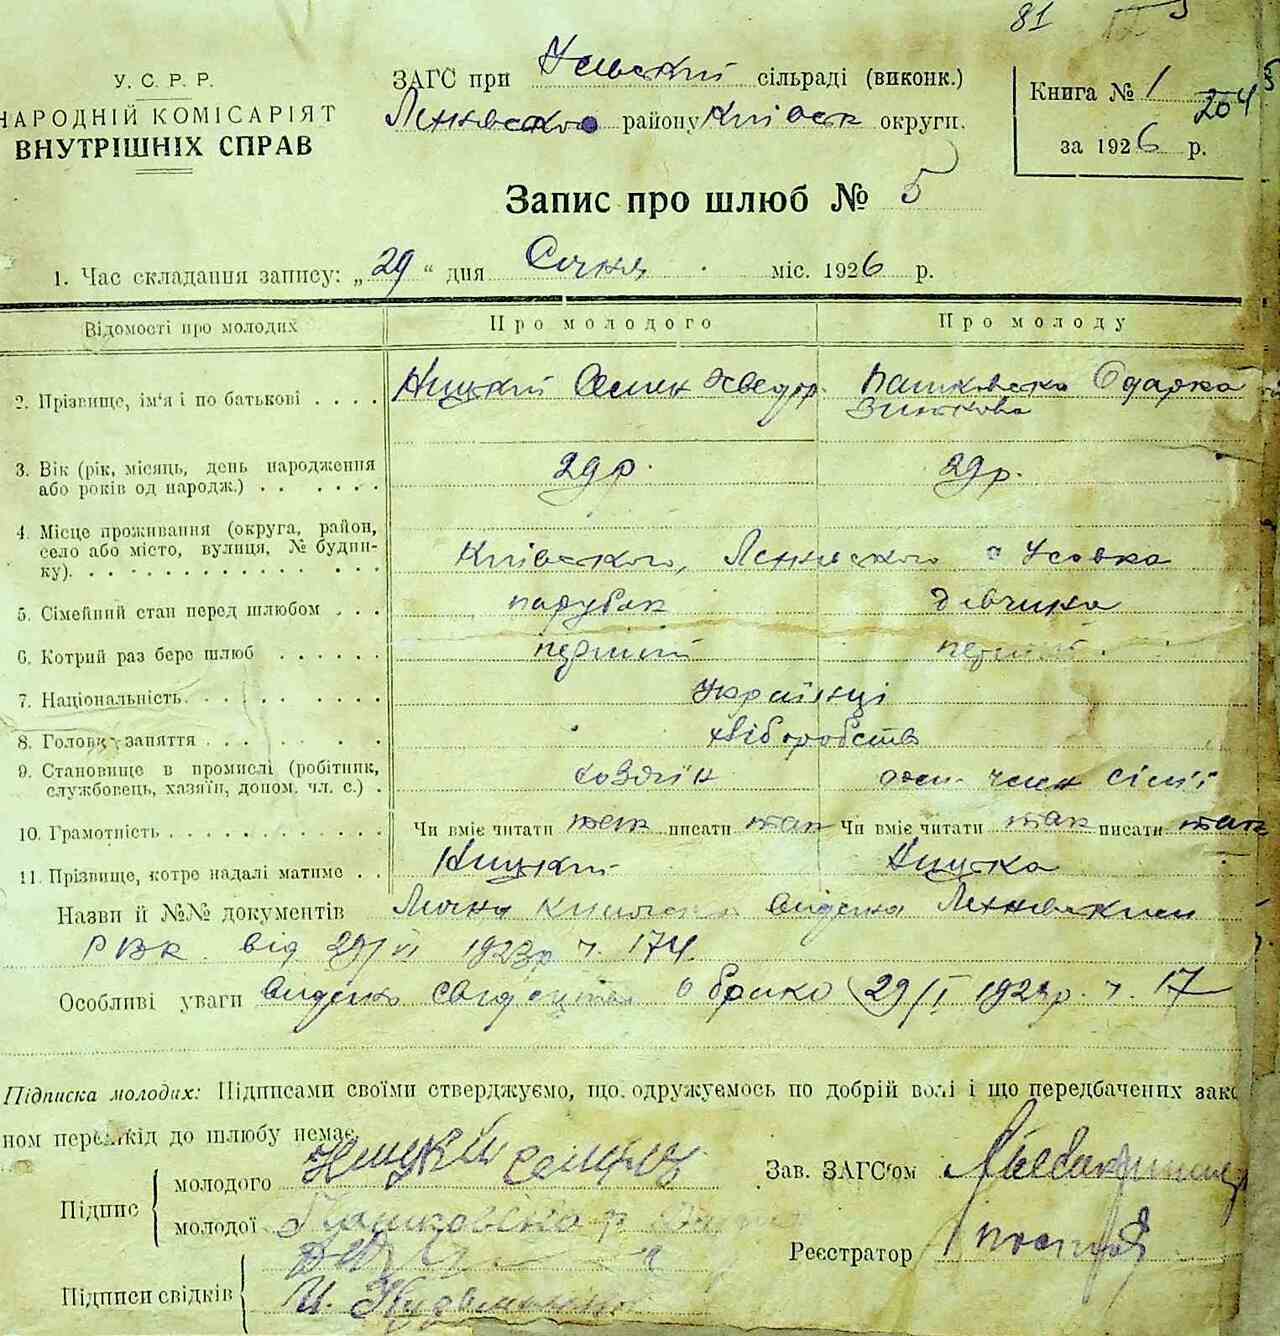 81
У. С. Р. Р.
НАРОДНІЙ КОМІСАРІЯТ
ВНУТРІШНІХ СПРАВ
ЗАГС при Усівский сільраді (виконк.)
району Київськ округи.
Книга № 1
204
за 1926 р.
Запис про шлюб № 5
1. Час складання запису: „29“ дня Січня міс. 1926 р.
Відомості про молодих Про молодого Про молоду
2. Прізвище, ім'я і по батькові . . . . Ницкий Семен Хведор. Пашковска Одарка
Зинькова
3. Вік (рік, місяць, день народження 29 р. 29 р.
або років од народж.) . . . . . .
4. Місце проживання (округа, район,
село або місто, вулиця, № будин-
ку). . . . . . . . . . . . . . . Київского, Усовка
5. Сімейний стан перед шлюбом . . . парубак дівчина
6. Котрий раз бере шлюб . . . . . . перший перший
7. Національність. . . . . . . . . Українці
8. Головн. заняття . . . . . . . . хліборобств
9. Становище в промислі (робітник, хозяїн член сімї
службовець, хазяїн, допом. чл. с.) .
10. Грамотність . . . . . . . . . . . . Чи вміє читати так писати так Чи вміє читати так писати так
11. Прізвище, котре надалі матиме . . Ницкий Ницка
Назви й №№ документів видана
РВК від 29/VI 1923р ч. 174
Особливі уваги о брако 29/I ч. 17
Підписка молодих: Підписами своїми стверджуємо, що одружуємось по добрій волі і що передбачених зако
ном перешкід до шлюбу немає.
Підпис
молодого Ницкий
молодої Пашковска
Зав. ЗАГС'ом
Реєстратор
Підписи свідків